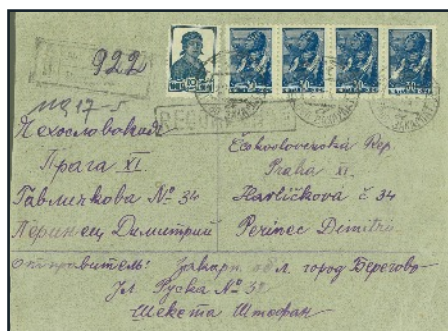 922
Чехословакия
Прага XI.
Гавличкова № 34
Перинец Димитрий
Československá Rep.
Praha XI.
Havličkova č 34
Perinec Dimitri
отправитель: Закарп. обл. город Берегово
Ул. Руска № 32
Шекета Штефан